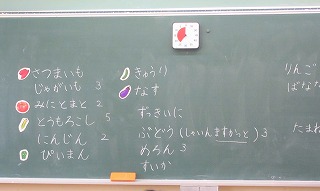 さつまいも
じゃがいも 3
みにとまと 2
とうもろこし 5
にんじん 2
ぴいまん
きゅうり
なす
ずっきいに
ぶどう(しゃいんますかっと)3
めろん 3
すいか
りんご
ばなな
たまね